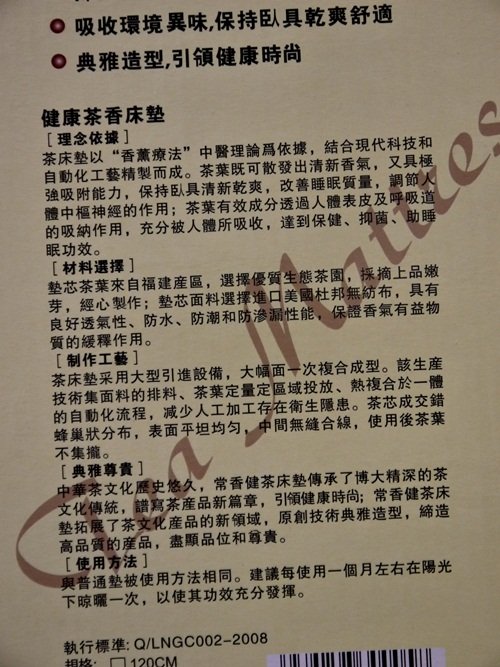 吸收環境異味,保持臥具乾爽舒適
典雅造型,引領健康時尚
健康茶香床墊
[ 理念依據 ]
茶床墊以“香薰療法”中醫理論爲依據，結合現代科技和
自動化工藝精製而成。茶葉既可散發出清新香氣，又具極
強吸附能力，保持臥具清新乾爽，改善睡眠質量，調節人
體中樞神經的作用；茶葉有效成分透過人體表皮及呼吸道
的吸納作用，充分被人體所吸收，達到保健、抑菌、助睡
眠功效。
[ 材料選擇 ]
墊芯茶葉來自福建産區，選擇優質生態茶園，採摘上品嫩
芽，經心製作；墊芯面料選擇進口美國杜邦無紡布，具有
良好透氣性、防水、防潮和防滲漏性能，保證香氣有益物
質的緩釋作用。
[ 制作工藝 ]
茶床墊采用大型引進設備，大幅面一次複合成型。該生産
技術集面料的排料、茶葉定量定區域投放、熱複合於一體
的自動化流程，減少人工加工存在衛生隱患。茶芯成交錯
蜂巢狀分布，表面平坦均匀，中間無縫合線，使用後茶葉
不集攏。
[ 典雅尊貴 ]
中華茶文化歷史悠久，常香健茶床墊傳承了博大精深的茶
文化傳統，譜寫茶産品新篇章，引領健康時尚；常香健茶床
墊拓展了茶文化産品的新領域，原創技術典雅造型，締造
高品質的産品，盡顯品位和尊貴。
[ 使用方法 ]
與普通墊被使用方法相同。建議每使用一個月左右在陽光
下晾曬一次，以使其功效充分發揮。
Tea Mattres
執行標準: Q/LNGC002-2008
規格: □ 120CM